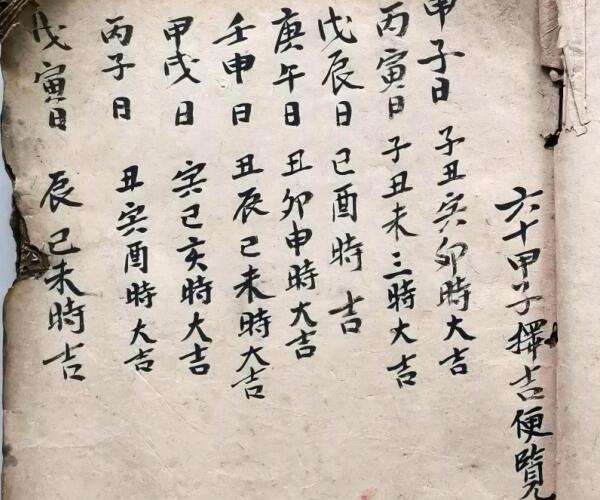 六十甲子擇吉便覽
甲子日 子丑寅卯時大吉
丙寅日 子丑未三時大吉
戊辰日 巳酉時 吉
庚午日 丑卯申時大吉
壬申日 丑辰巳未時大吉
甲戌日 寅巳亥時大吉
丙子日 丑寅酉時大吉
戊寅日 辰巳未時吉